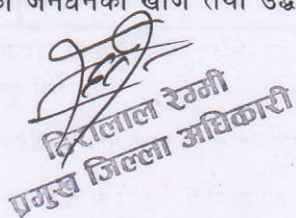 जनधनको खोज तथा
हिरालाल रेग्मी
प्रमुख जिल्ला अधिकारी